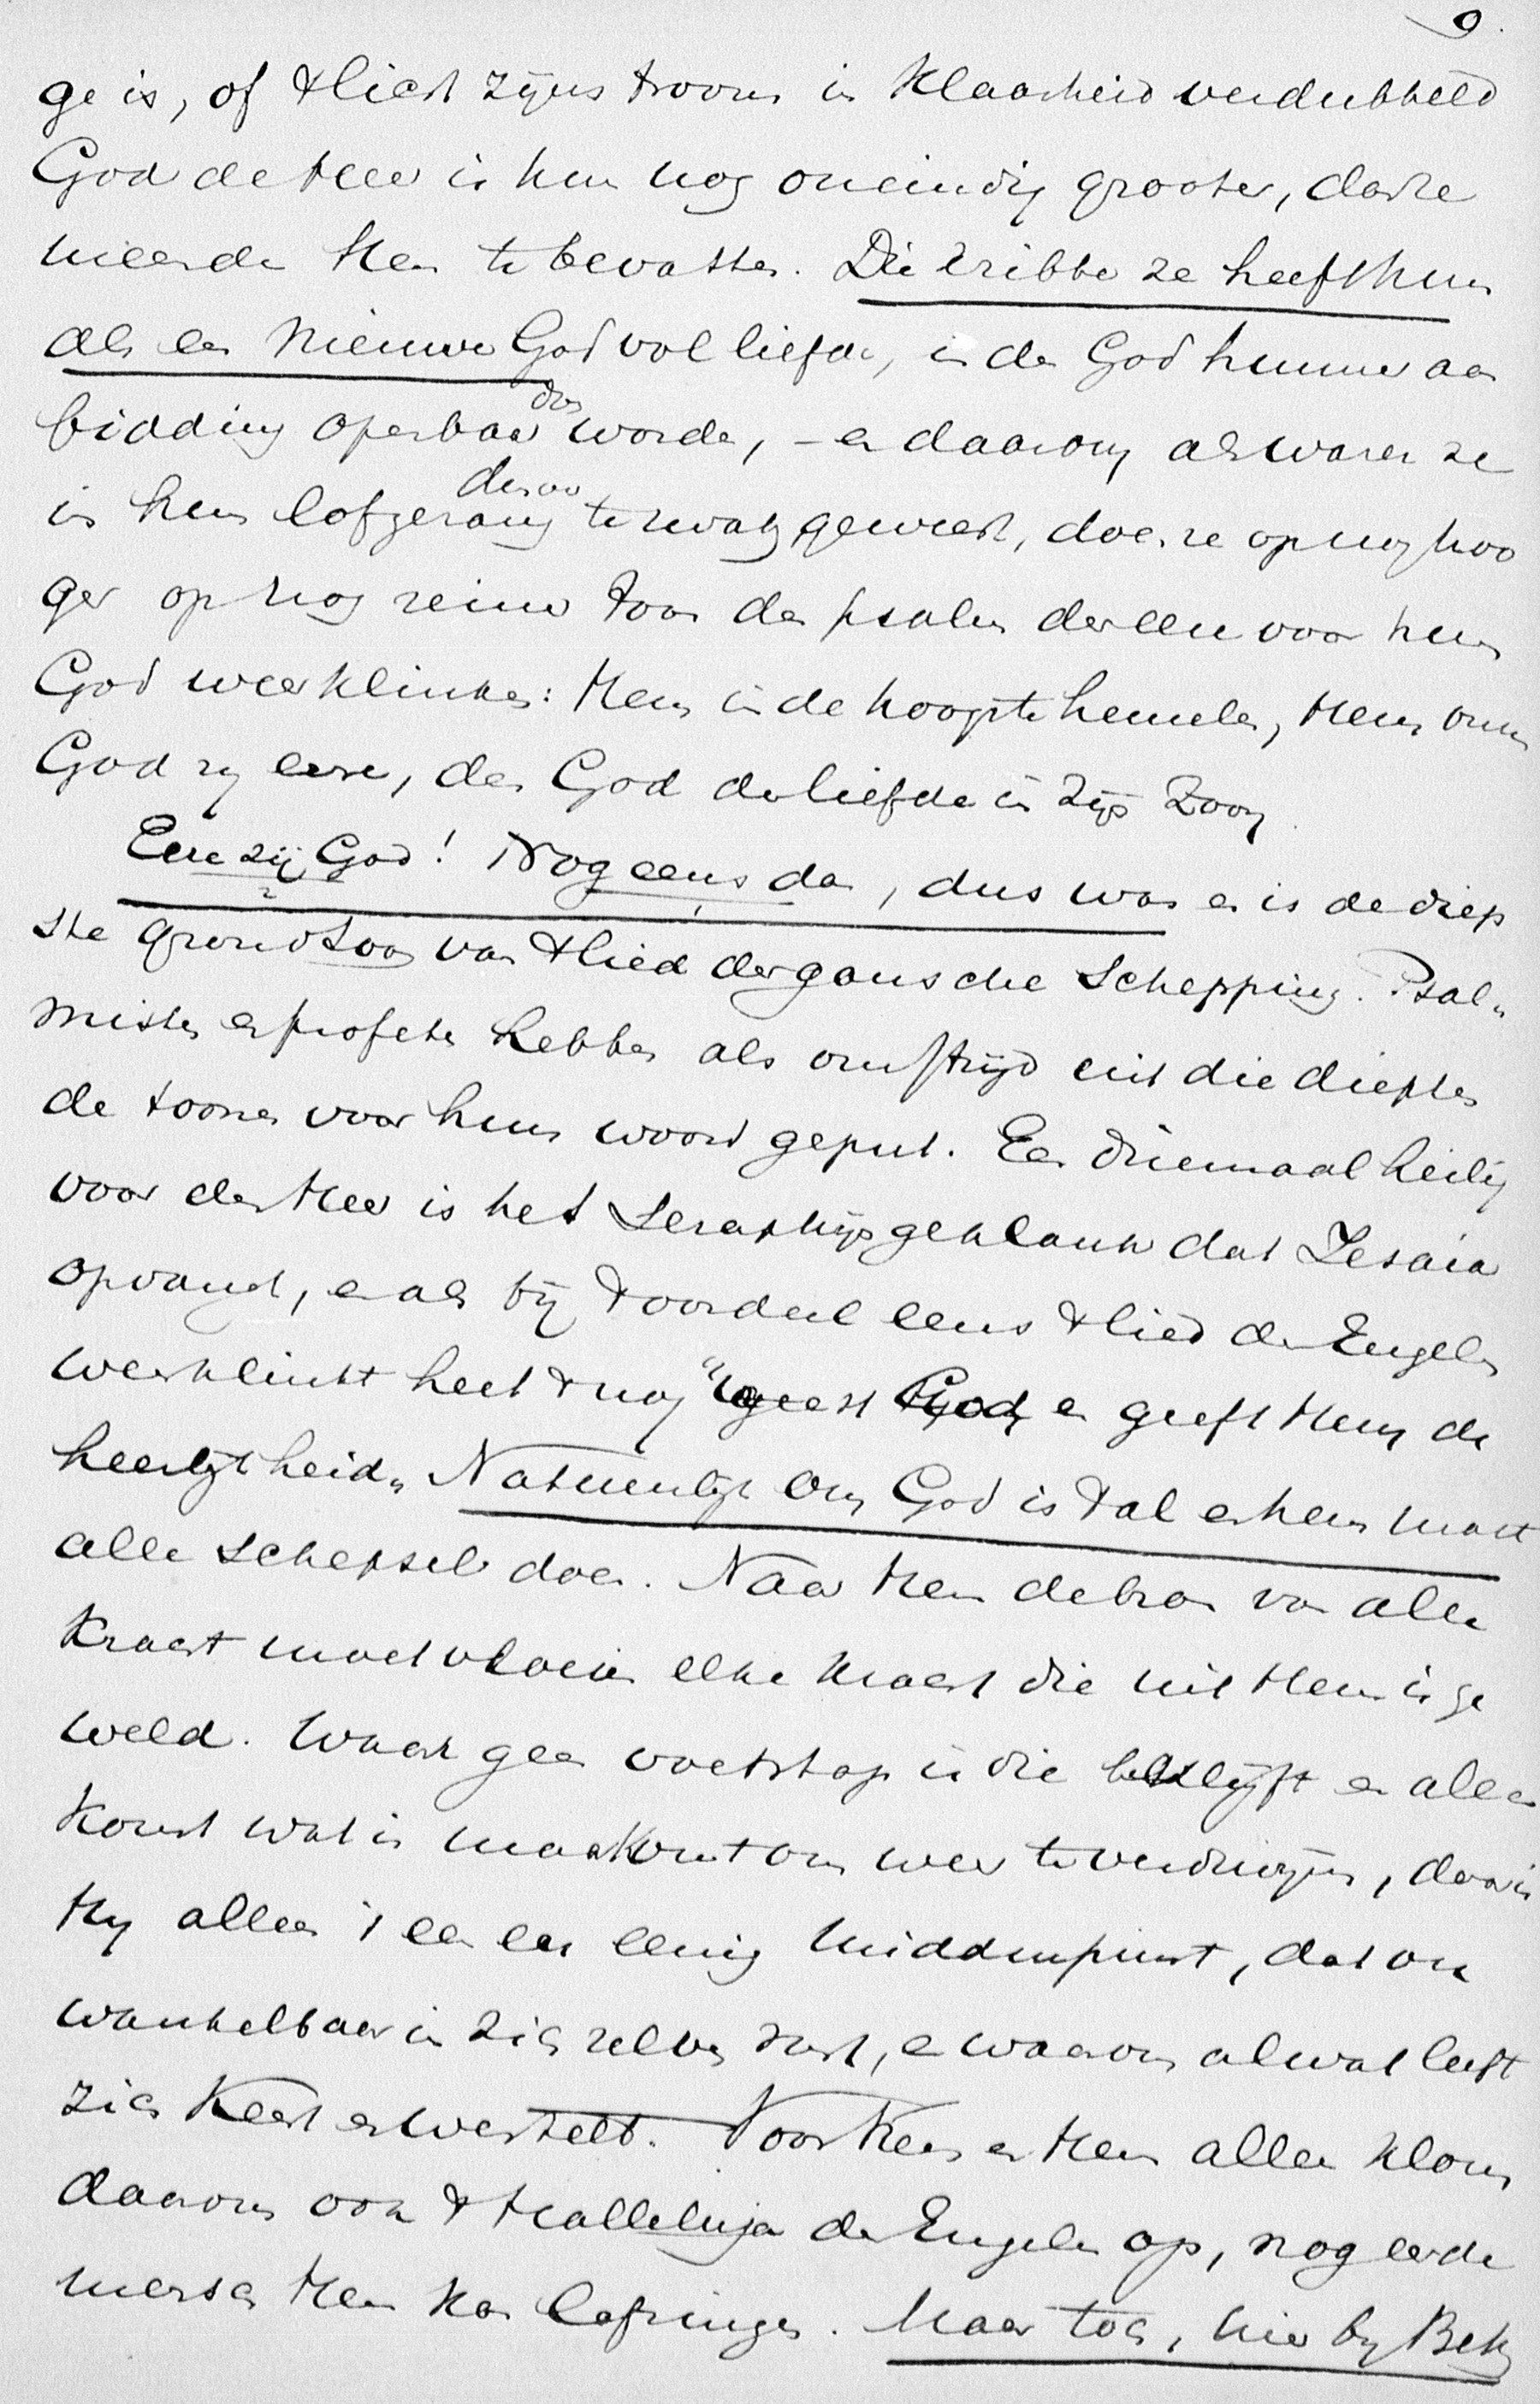 9.
ge is, of t licht zijns troons in klaarheid verdubbeld
God de Heer is hun nog oneindig grooter, dan ze
meende Hem te bevatten. Die kribbe ze heeft hun
als een nieuwe God vol liefde, in den God hunner aan
bidding openbaar doen worden, – en daarom als waren ze
in hun lofgezang dusver te zwak geweest, doen ze op nog hoo
ger op nog reiner toon den psalm der eere voor hun
God weerklinken: Hem in de hoogste hemelen, Hem onzen
God zij eere, den God der liefde in zijn Zoon.
Eere zij God! Nog eens dan, dus was en is de diep
ste grondtoon van t lied der gansche Schepping. Psal„
misten en profeten hebben als om strijd uit die diepten
de toonen voor hun woord geput. Een driemaal heilig
voor den Heer is het Serafijngeklank dat Jesaia
opvangt, en als bij t oordeel eens t lied der Engelen
weerklinkt heet t nog "vreest God, en geeft Hem de
heerlijkheid„ Natuurlijk Om God is t al en hem moet
alle schepsel doen. Naar Hem de bron van alle
kracht moet vloeien elke kracht die uit Hem is ge
weld. Waar geen voetstap is die beklijft en alleen
komt wat is maar komt om weer te verdwijnen, daar is
Hij alleen 't een en eenig Middenpunt, dat on
wankelbaar in zich zelven rust, en waarom al wat leeft
zich keert en wentelt. Voor Hem en Hem alleen klom
daarom ook t Halleluja der Engelen op, nog eer de
mensch Hem kon lofzingen. Maar toch, hier bij Beth